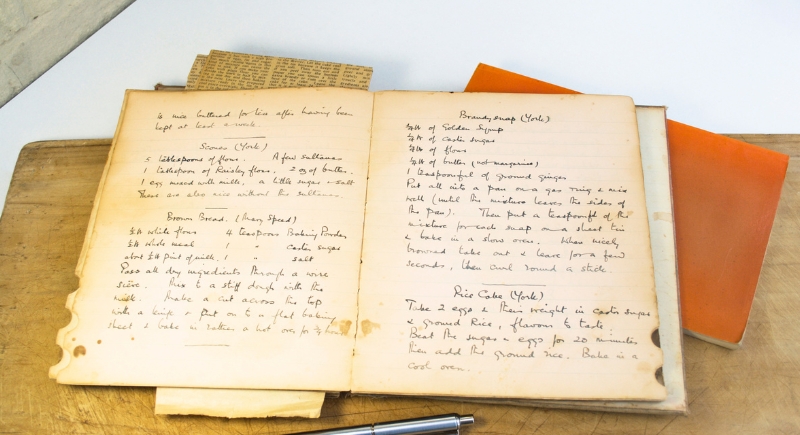 is nice buttered for tea after having been
kept at least a week.
Scones (York)
5 tablespoons of flour. A few sultanas
1 tablespoon of Raisley flour, 2 oz of butter.
1 egg mixed with milk, a little sugar & salt
These are also nice without the sultanas.
Brown Bread. (Mary Speed)
½ lb white flour 4 teaspoons Baking Powder
½ lb whole meal 1 " castor sugar
about ¾ pint of milk. 1 " salt
Pass all dry ingredients through a wire
sieve. Mix to a stiff dough with the
milk. Make a cut across the top
with a knife & put on to a flat baking
sheet & bake in rather a hot oven for ½ hour
Brandysnap (York)
¼ lb of Golden Syrup
¼ lb of castor sugar
¼ lb of flour
¼ lb of butter (not margarine)
1 teaspoonful of ground ginger
Put all into a pan on a gas ring & mix
well (until the mixture leaves the sides of
the pan). Then put a teaspoonful of the
mixture for each snap on a sheet tin
& bake in a slow oven. When nicely
browned take out & leave for a few
seconds, then curl round a stick.
Rice Cake (York)
Take 2 eggs & their weight in castor sugar
& ground Rice, flavour to taste
Beat the sugar & eggs for 20 minutes
then add the ground rice. Bake in a
cool oven.